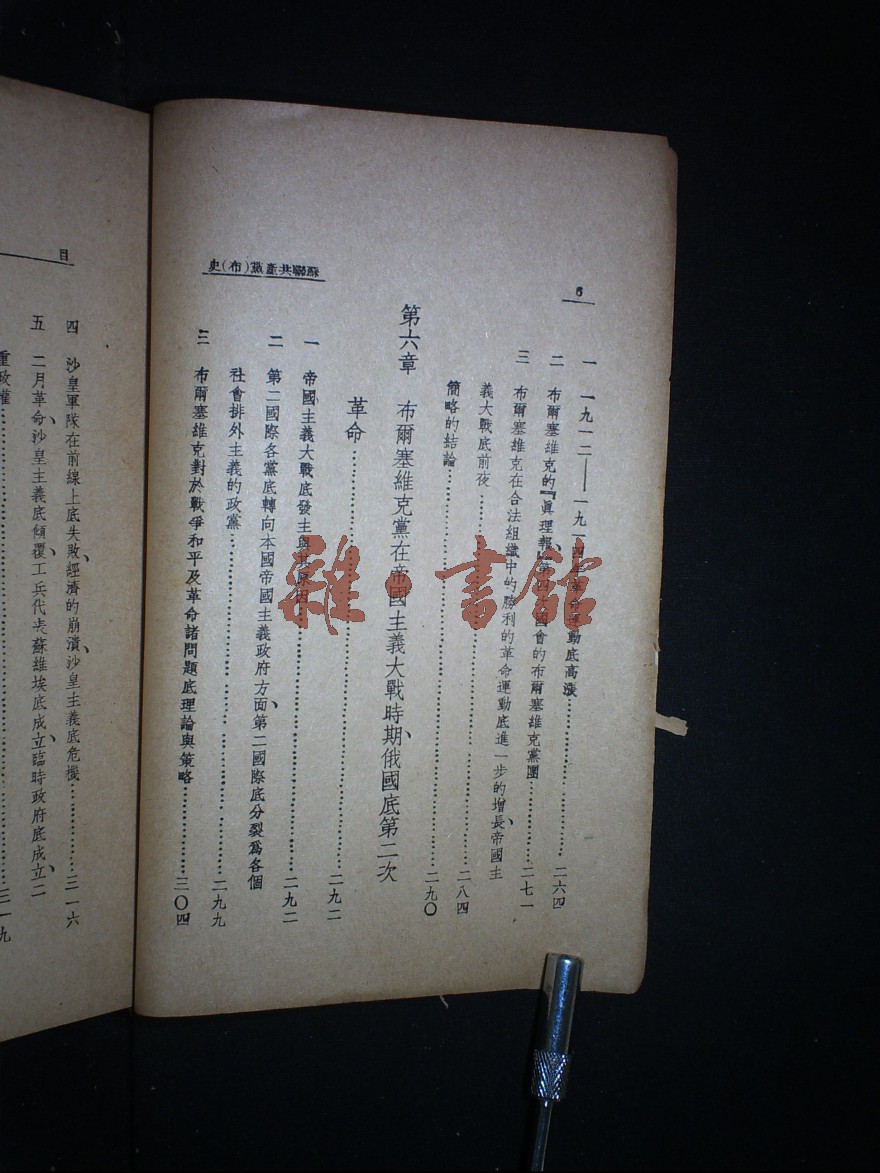 6
蘇聯共產黨(布)史
一 一九一二——一九一四年革命運動底高漲……………二六四
二 布爾塞維克的『眞理報』、第四國會的布爾塞維克黨團……二七一
三 布爾塞維克在合法組織中的勝利的革命運動底進一步的增長、帝國主
義大戰底前夜……………二八四
簡略的結論……………二九〇
第六章 布爾塞維克黨在帝國主義大戰時期、俄國底第二次
革命……………二九二
一 帝國主義大戰底發生與其原因……………二九二
二 第二國際各黨底轉向本國帝國主義政府方面、第二國際底分裂爲各個
社會排外主義的政黨……………二九九
三 布爾塞維克對於戰爭和平及革命諸問題底理論與策略……………三〇四
目
四 沙皇軍隊在前線上底失敗、經濟的崩潰、沙皇主義底危機……………三一六
五 二月革命、沙皇主義底傾覆、工兵代表蘇維埃底成立、臨時政府底成立、二
重政權……………三一九
雜·書館